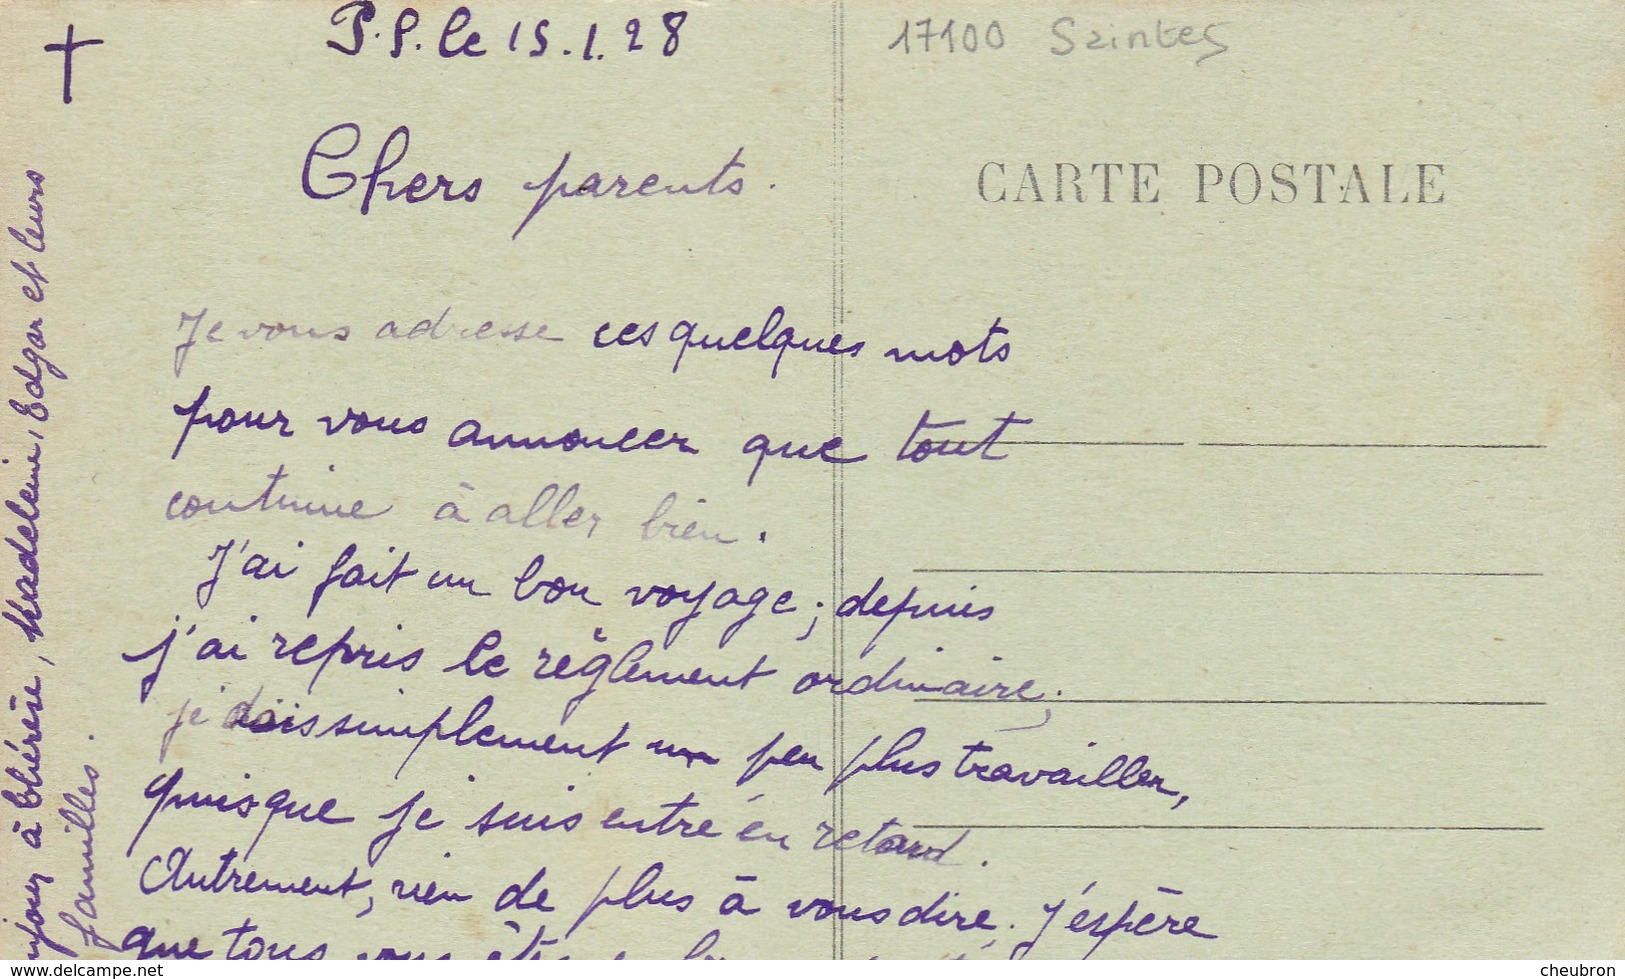 P.S. le 15.1.28
17100 Saintes
CARTE POSTALE
Chers parents.
Je vous adresse ces quelques mots
pour vous annoncer que tout
continue à aller bien.
J'ai fait un bon voyage ; depuis
j'ai repris le règlement ordinaire ;
je dois simplement un peu plus travailler,
puisque je suis entré en retard.
Autrement, rien de plus à vous dire. J'espère
que tous vous êtes
à Thérèse, Madeleine, Edgar et leurs
familles.
www.delcampe.net
cheubron